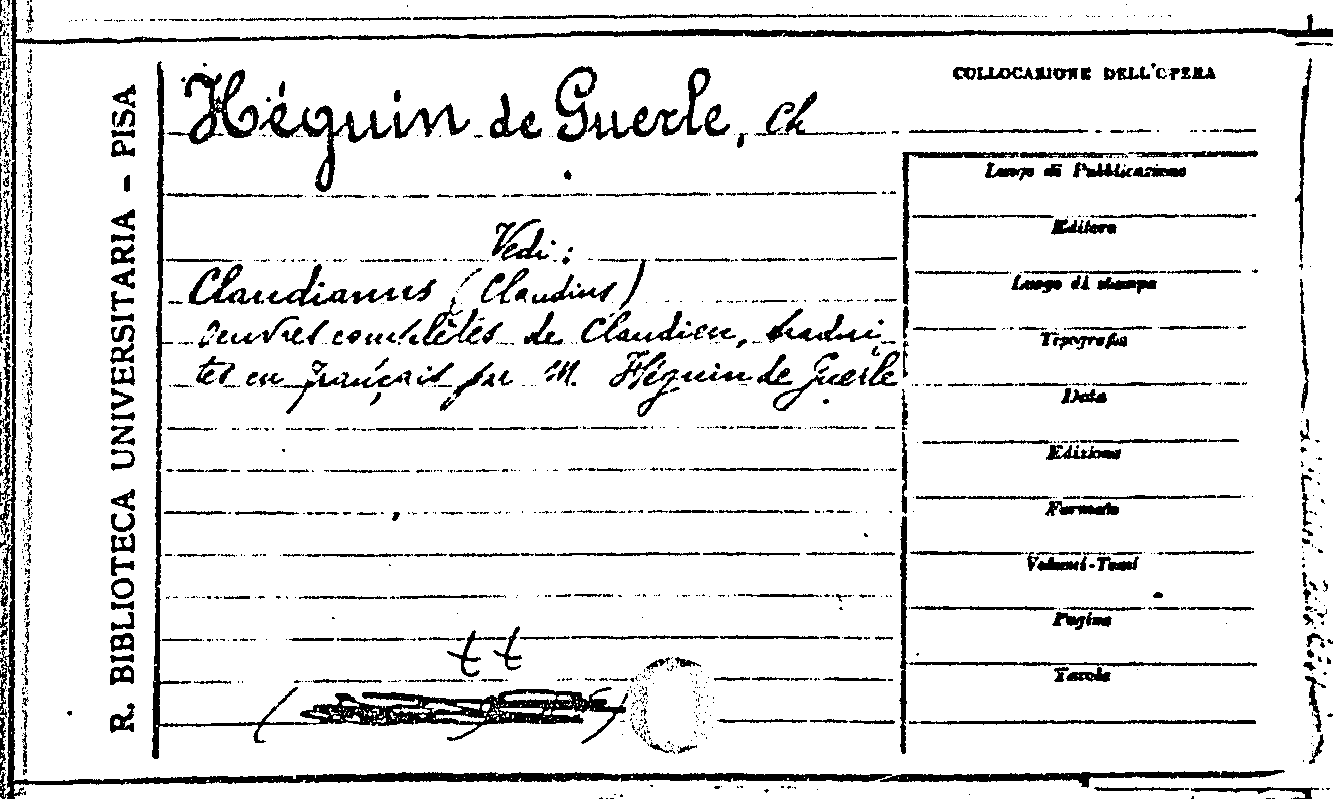 R. BIBLIOTECA UNIVERSITARIA - PISA
Héguin de Guerle, Ch
Vedi:
Claudianus (Claudius)
Oeuvres complètes de Claudien, tradui
tes en français par M. Héguin de Guerle
tt
COLLOCAZIONE DELL'OPERA
Luogo di Pubblicazione
Editore
Luogo di stampa
Tipografia
Data
Edizione
Formato
Volumi-Tomi
Pagine
Tavole